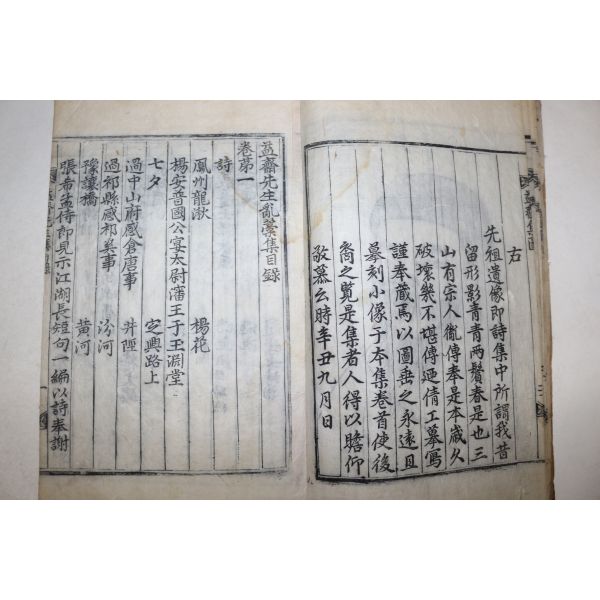 右
先祖遺像即詩集中所謂我昔
留形影青青兩鬢春是也三
山有宗人胤傳奉是本歲久
破壞幾不堪傳廼倩工摹寫
謹奉藏焉以圖垂之永遠且
摹刻小像于夲集卷首使後
裔之覽是集者人得以瞻仰
敬慕云時辛丑九月日
益齋先生亂藁集目錄
卷第一
詩
鳳州龍湫 楊花
楊安普國公宴太尉瀋王于玉淵堂
七夕 定興路上
過中山府感倉唐事 井陘
過祁縣感祁奚事 汾河
豫讓橋 黃河
張希孟侍郎見示江湖長短句一編以詩奉謝